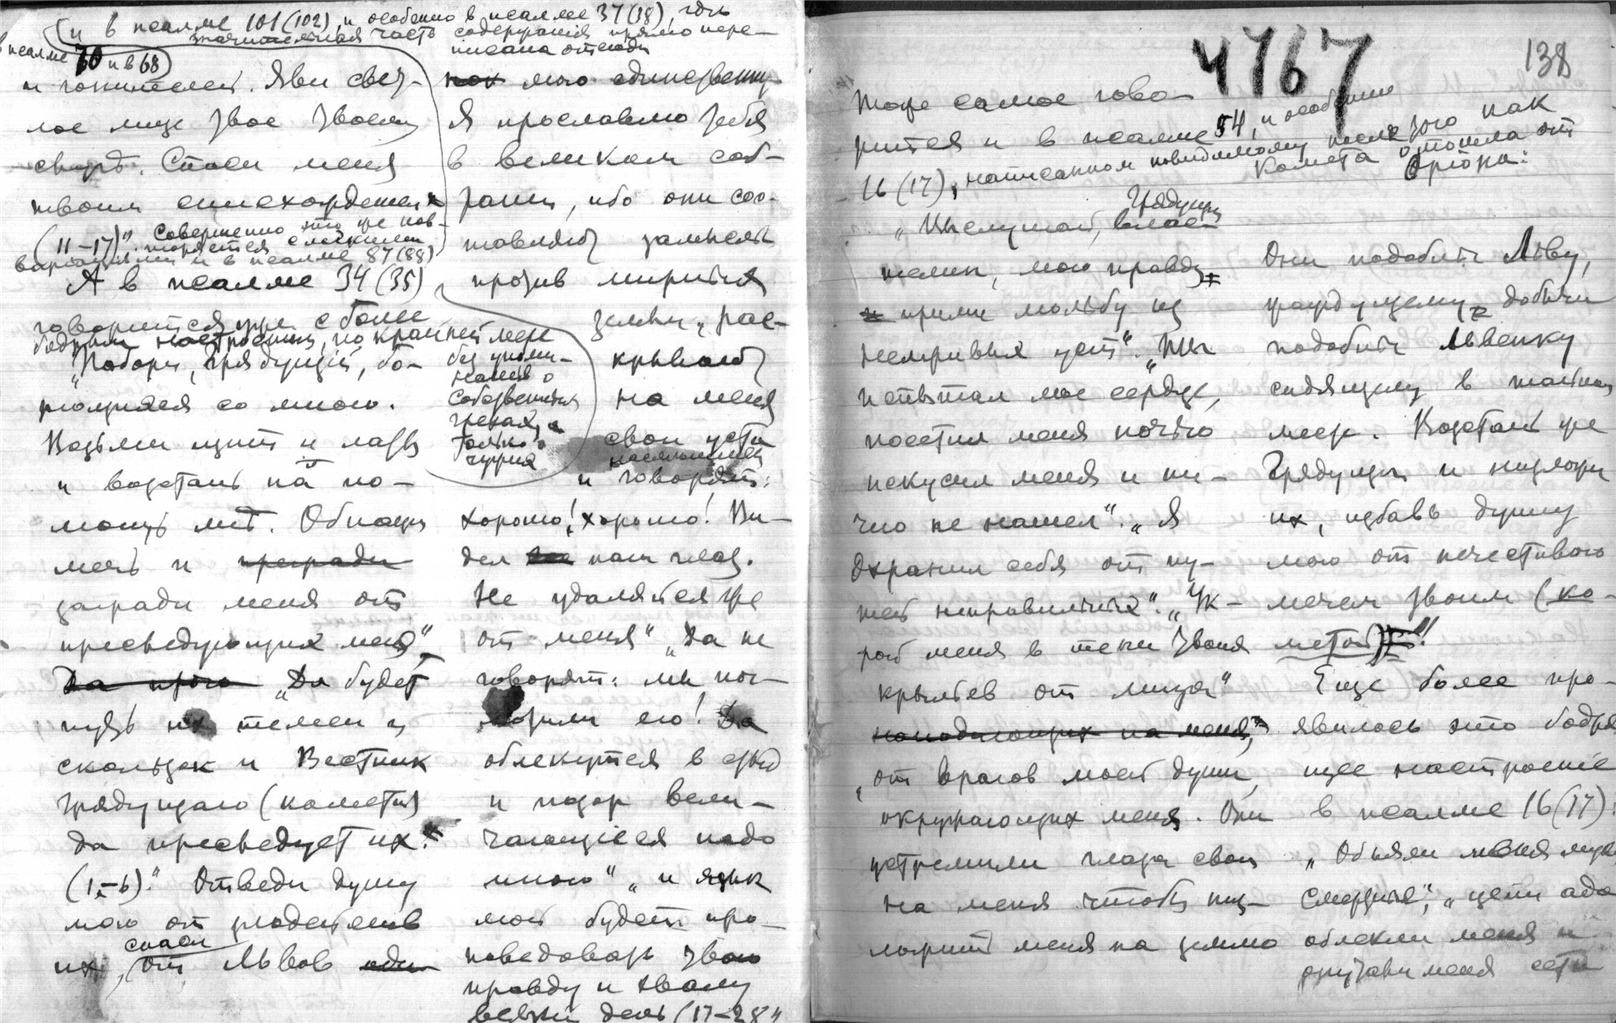 и в псалме 101(102), и особенно в псалме 37(38), где
значительная часть содержания прямо пере-
писана отсюда
в псалме 70 и в 68)
и гонителей. Яви свет-
лое лице Твое Твоему
Спаси меня
твоим снисхождением
(11–17)". Совершенно это же пов-
торяется с легкими
вариациями и в псалме 87(88)
А в псалме 34(35)
говорится уже с более
бодрым настроением, по крайней мере
„Побори, Грядущий, бо-
рющихся со мною.
Возьми щит и латы
и возстань на по-
мощь мне. Обнажи
мечь и прегради
загради меня от
преследующих меня"
„Да будет
путь их темен и
скользок и Вестник
Грядущаго (комета)
да преследует их.
(1–6)." Отведи душу
мою от злодейств
их, спаси от Львов
мою единственную
Я прославлю Тебя
в великом соб-
рании, ибо они сос-
тавляют замыслы
против мирных
земли, рас-
без упоми-
нания о
собственных
грехах, а
только о
чужих
крывают
на меня
свои уста
и говорят:
хорошо! хорошо! Ви-
дел наш глаз.
Не удаляйся же
от меня" „Да не
говорят: мы пог-
лотили его! Да
облекутся в стыд
и позор вели-
чающиеся надо
мною" „и язык
мой будет про-
поведовать Твою
правду и хвалу
всякий день (17–28"
4767
138
Тоже самое гово-
рится и в псалме 54, и особенно
16(17), написанном повидимому после того как
комета отошла от
Ориона:
„Выслушай, Грядущий
мою правду
прими мольбу из
нелживых уст". „Ты
испытал мое сердце,
посетил меня ночью
искусил меня и ни-
чего не нашел". „Я
охранил себя от пу-
тей неправильных". „Ук-
рой меня в тени Твоих
крыльев от лица"
нападающих на меня,
„от врагов моей души,
окружающих меня. Они
устремили глаза свои
на меня чтобы низ-
ложить меня на землю
Они подобны Льву,
жаждущему добычи
подобны Львенку
сидящему в тайном
месте. Возстань же
Грядущий и низложи
их, избавь душу
мою от нечестиваго
мечем Твоим (ко-
метой)"!
Еще более про-
явилось это бодря-
щее настроение
в псалме 16(17):
„Объяли меня муки
Смертные", „цепи ада
облекли меня и
опутали меня сети